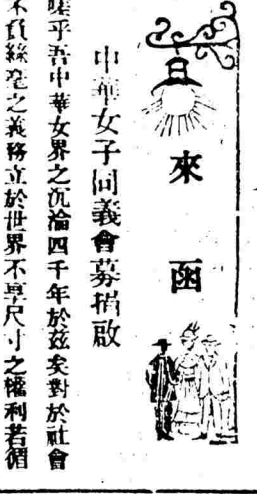 來函
中華女子同義會募捐啟
嗟乎吾中華女界之沉淪四千年於茲矣對於社會
不負絲毫之義務立於世界不享尺寸之權利若個